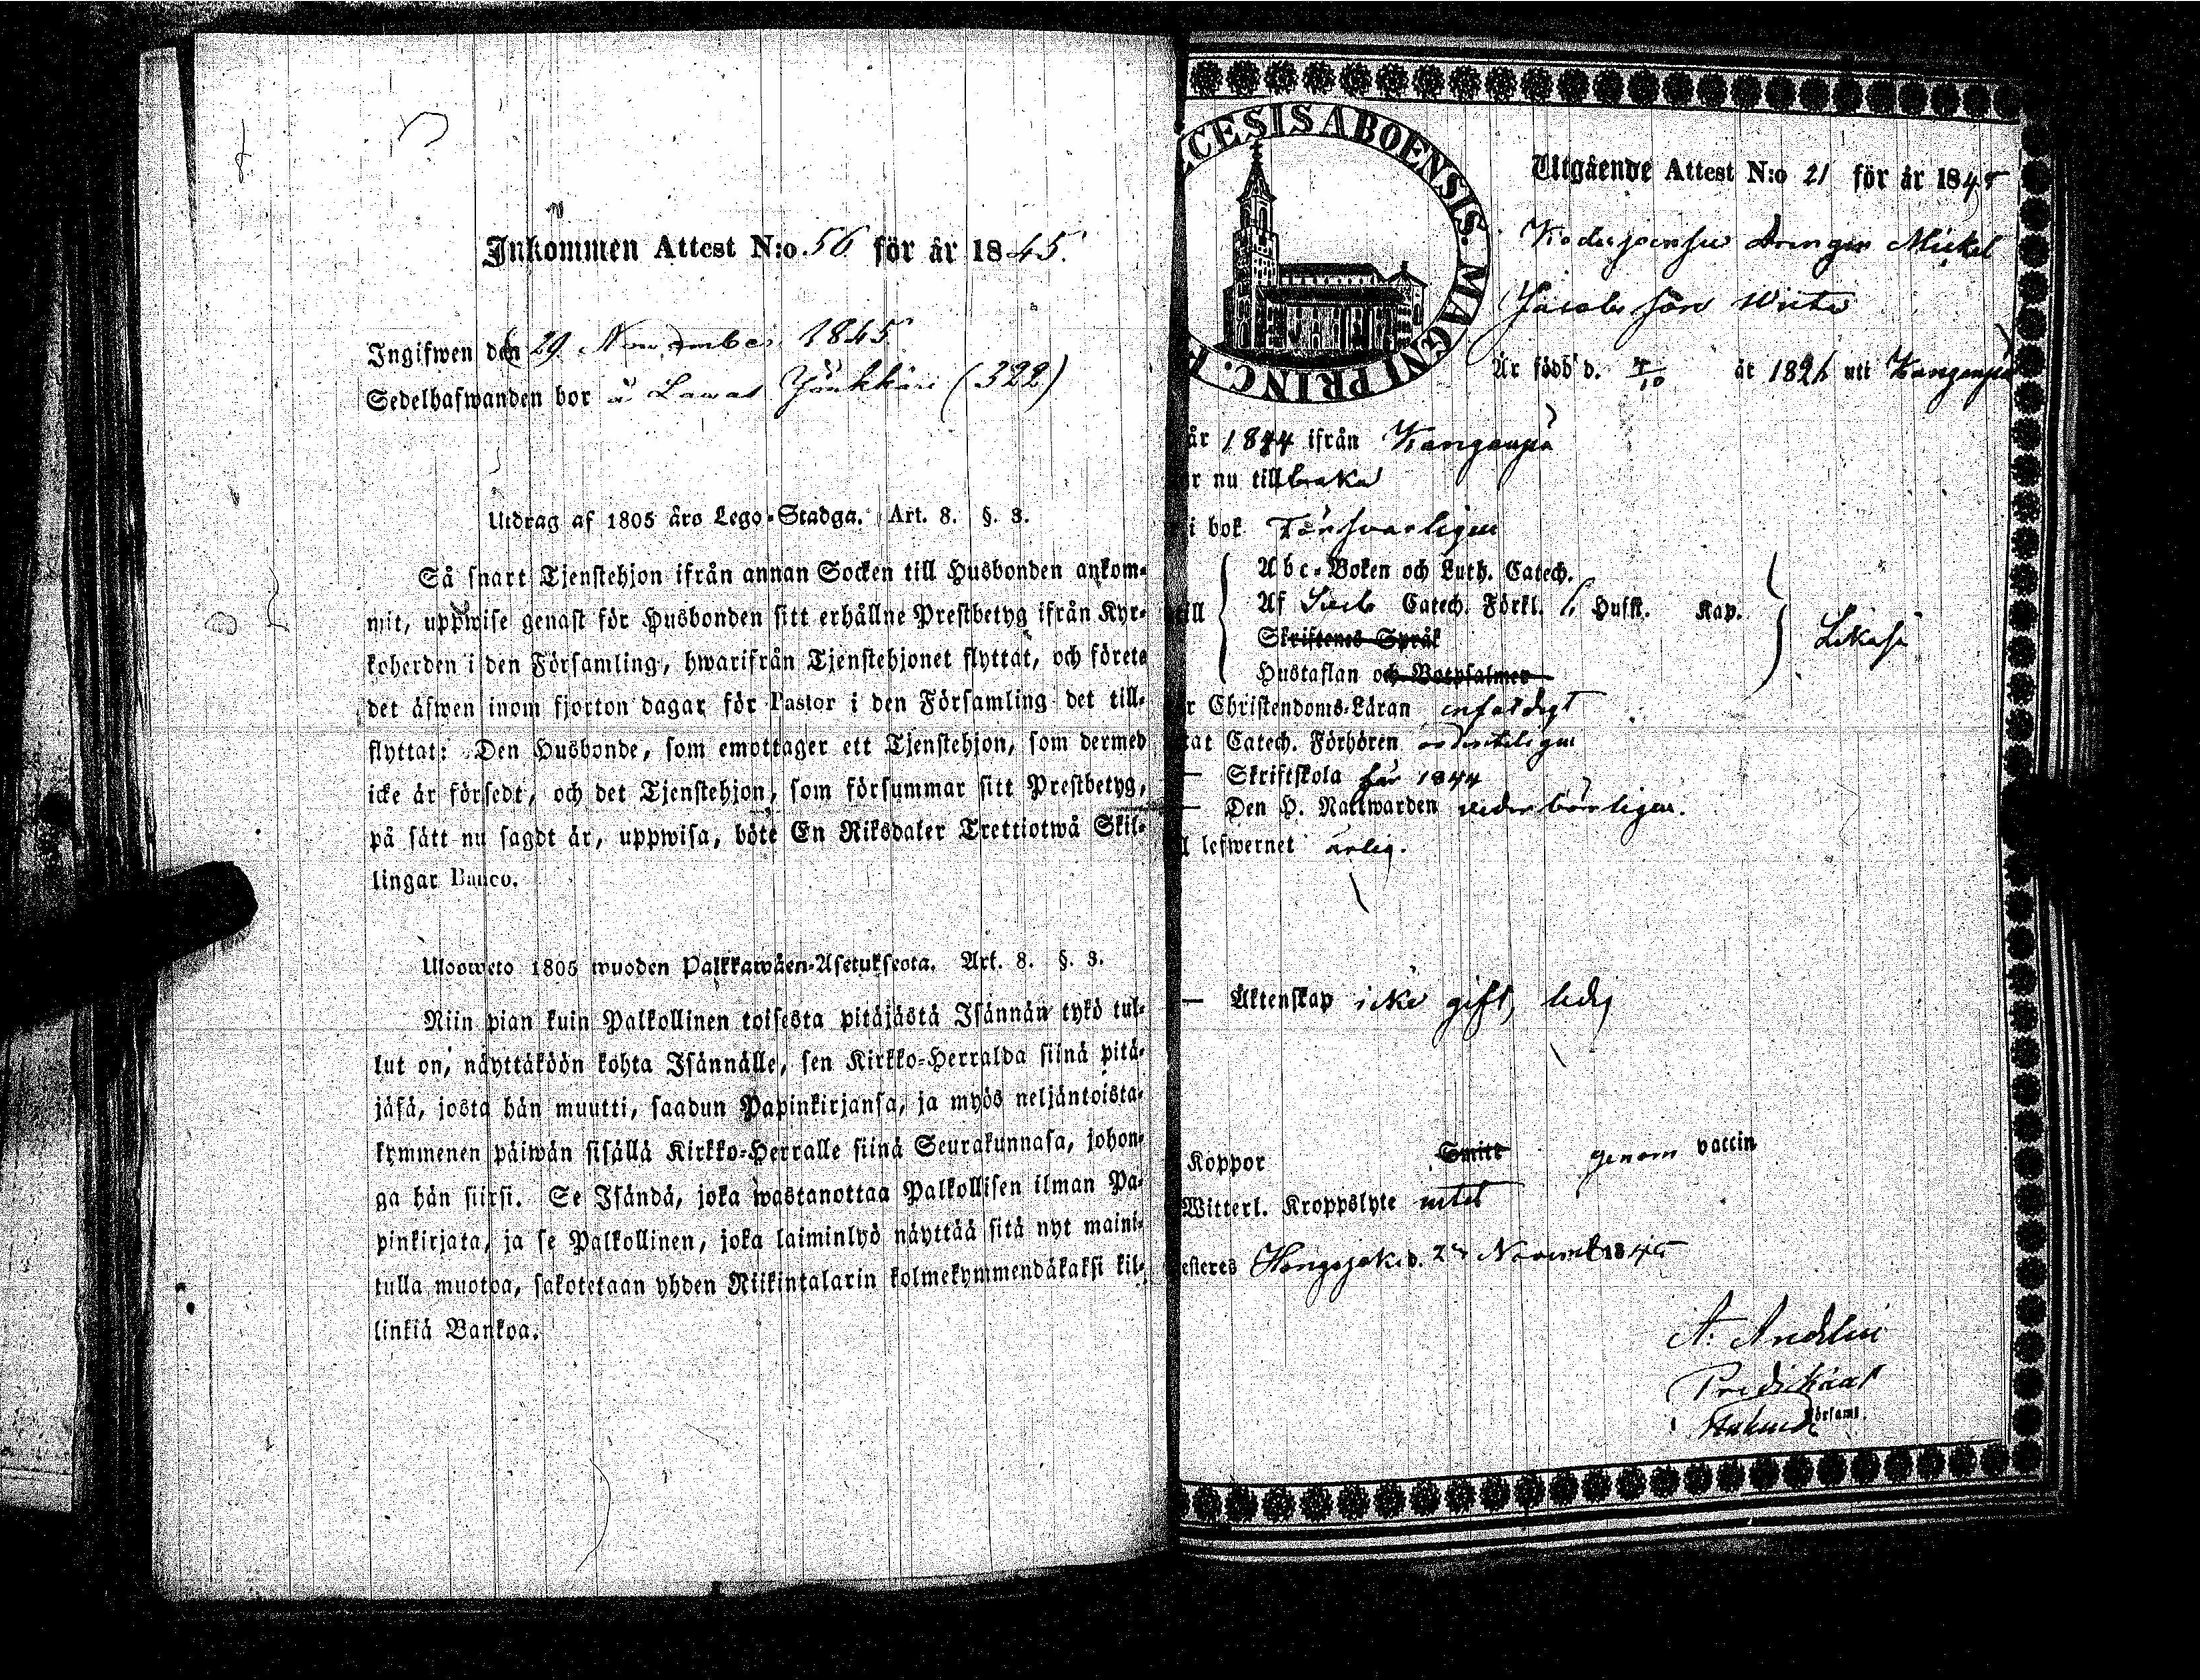 Inkommen Attest N:o 56 för år 1845.
Ingifwen den 29 November 1845
Sedelhafwanden bor å Lawas (322)
Utdrag af 1805 års Lego-Stadga. Art. 8. §. 3.
Så snart Tjenstehjon ifrån annan Socken till Husbonden ankom-
mit, uppwise genast för Husbonden sitt erhållne Prestbetyg ifrån Kyr-
koherden i den Församling, hwarifrån Tjenstehjonet flyttat, och förete
det äfwen inom fjorton dagar för Pastor i den Församling det till-
flyttat: Den Husbonde, som emottager ett Tjenstehjon, som dermed
icke är försedt, och det Tjenstehjon, som försummar sitt Prestbetyg,
på sätt nu sagdt är, uppwisa, böte En Riksdaler Trettiotwå Skil-
lingar Banco.
Ulosweto 1805 wuoden Palkkawäen-Asetuksesta. Art. 8. §. 3.
Niin pian kuin Palkollinen toisesta pitäjästä Isännän tykö tul-
lut on, näyttäköön kohta Isännälle, sen Kirkko-Herralda siinä pitä-
jäsä, josta hän muutti, saadun Papinkirjansa, ja myös neljäntoista-
kymmenen päiwän sisällä Kirkko-Herralle siinä Seurakunnasa, johon-
ga hän siirsi. Se Isändä, joka wastanottaa Palkollisen ilman Pa-
pinkirjata, ja se Palkollinen, joka laiminlyö näyttää sitä nyt maini-
tulla muotoa, sakotetaan yhden Riikintalarin kolmekymmendäkaksi kil-
linkiä Bankoa.
ŒCESIS ABOENSIS. MAGNI PRINC. F
Utgående Attest N:o 21 för år 1845
Drengen Mickel
Jacobsson
Är född d. 4/10 år 1826 uti Kanganpä
år 1844 ifrån Kanganpä
r nu tillbaka
i bok försvarligen
Abc-Boken och Luth. Catech.
Af Catech. Förkl. Hufst. Kap.
Skriftenes Språk
Hustaflan och Botpsalmer
r Christendoms-Läran enfaldigt
tat Catech. Förhören ordenteligen
— Skriftskola för 1844
— Den H. Nattwarden vederbörligen.
l lefwernet ärlig.
— Äktenskap icke gift, ledig
Koppor Smitt genom vaccin
Witterl. Kroppslyte intet
esteres Hongojoki d. 2 Novemb 1845
A. Andelin
Predikant
Församl.